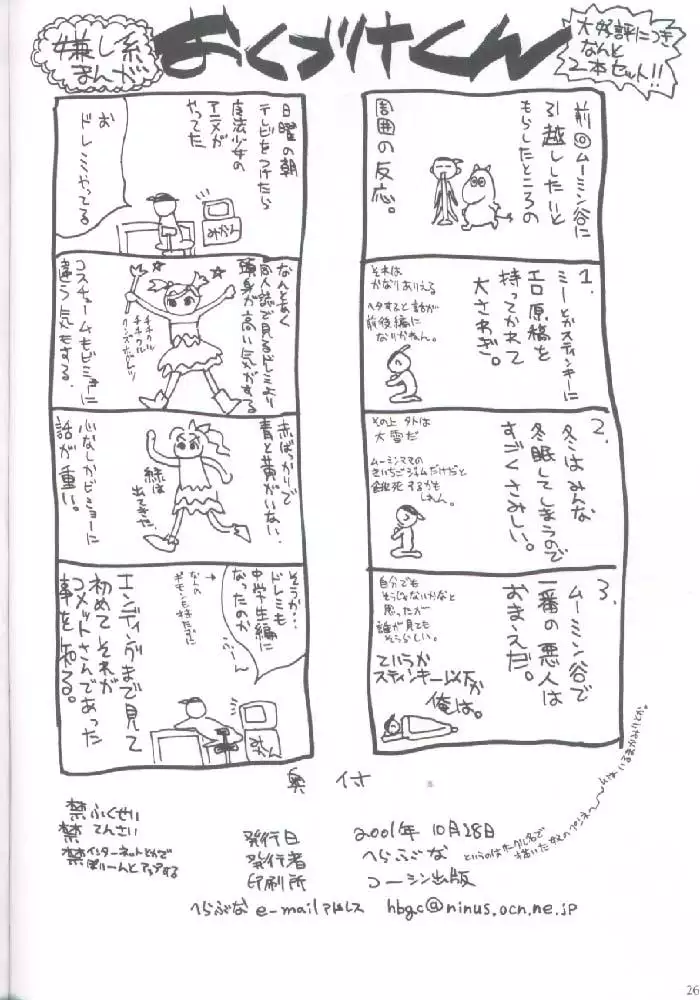 嫌し系
まんが
おくづけくん
大好評につき
なんと
2本セット!!
前回ムーミン谷に
引越ししたいと
もらしたところの
周囲の反応。
1.
ミーとかスティンキーに
エロ原稿を
持ってかれて
大さわぎ。
それは
かなりありえる
ヘタすると話が
前後編に
なりかねん。
2.
冬はみんな
冬眠してしまうので
すごくさみしい。
その上外は
大雪だ
ムーミンママの
きいちごジャムだけだと
餓死するかも
しれん。
3.
ムーミン谷で
一番の悪人は
おまえだ。
自分でも
そうじゃないかなと
思ったが
誰が見ても
そうらしい。
ていうか
スティンキー以下か
俺は。
日曜の朝
テレビをつけたら
魔法少女の
アニメが
やってた
お
ドレミやってる
みかん
なんとなく
同人誌で見るドレミより
頭身が高い気がする
コスチュームもビミョーに
違う気もする。
赤ばっかりで
青と黄がいない。
緑は
出てきた
心なしかビミョーに
話が重い。
そうか…
ドレミも
中学生編に
なったのか
ふーん
なんの
ギモンも持たずに
エンディングまで見て
初めてそれが
コメットさんであった
事を知る。
みかん
奥付
禁ふくせい
禁てんさい
禁インターネットとかで
ぼりーんとアップする
発行日 2001年10月28日
発行者 へらぶな
印刷所 コーシン出版
へらぶな e-mailアドレス hbgc@ninus.ocn.ne.jp
というのはサークル名で
描いた奴のペンネーム
26